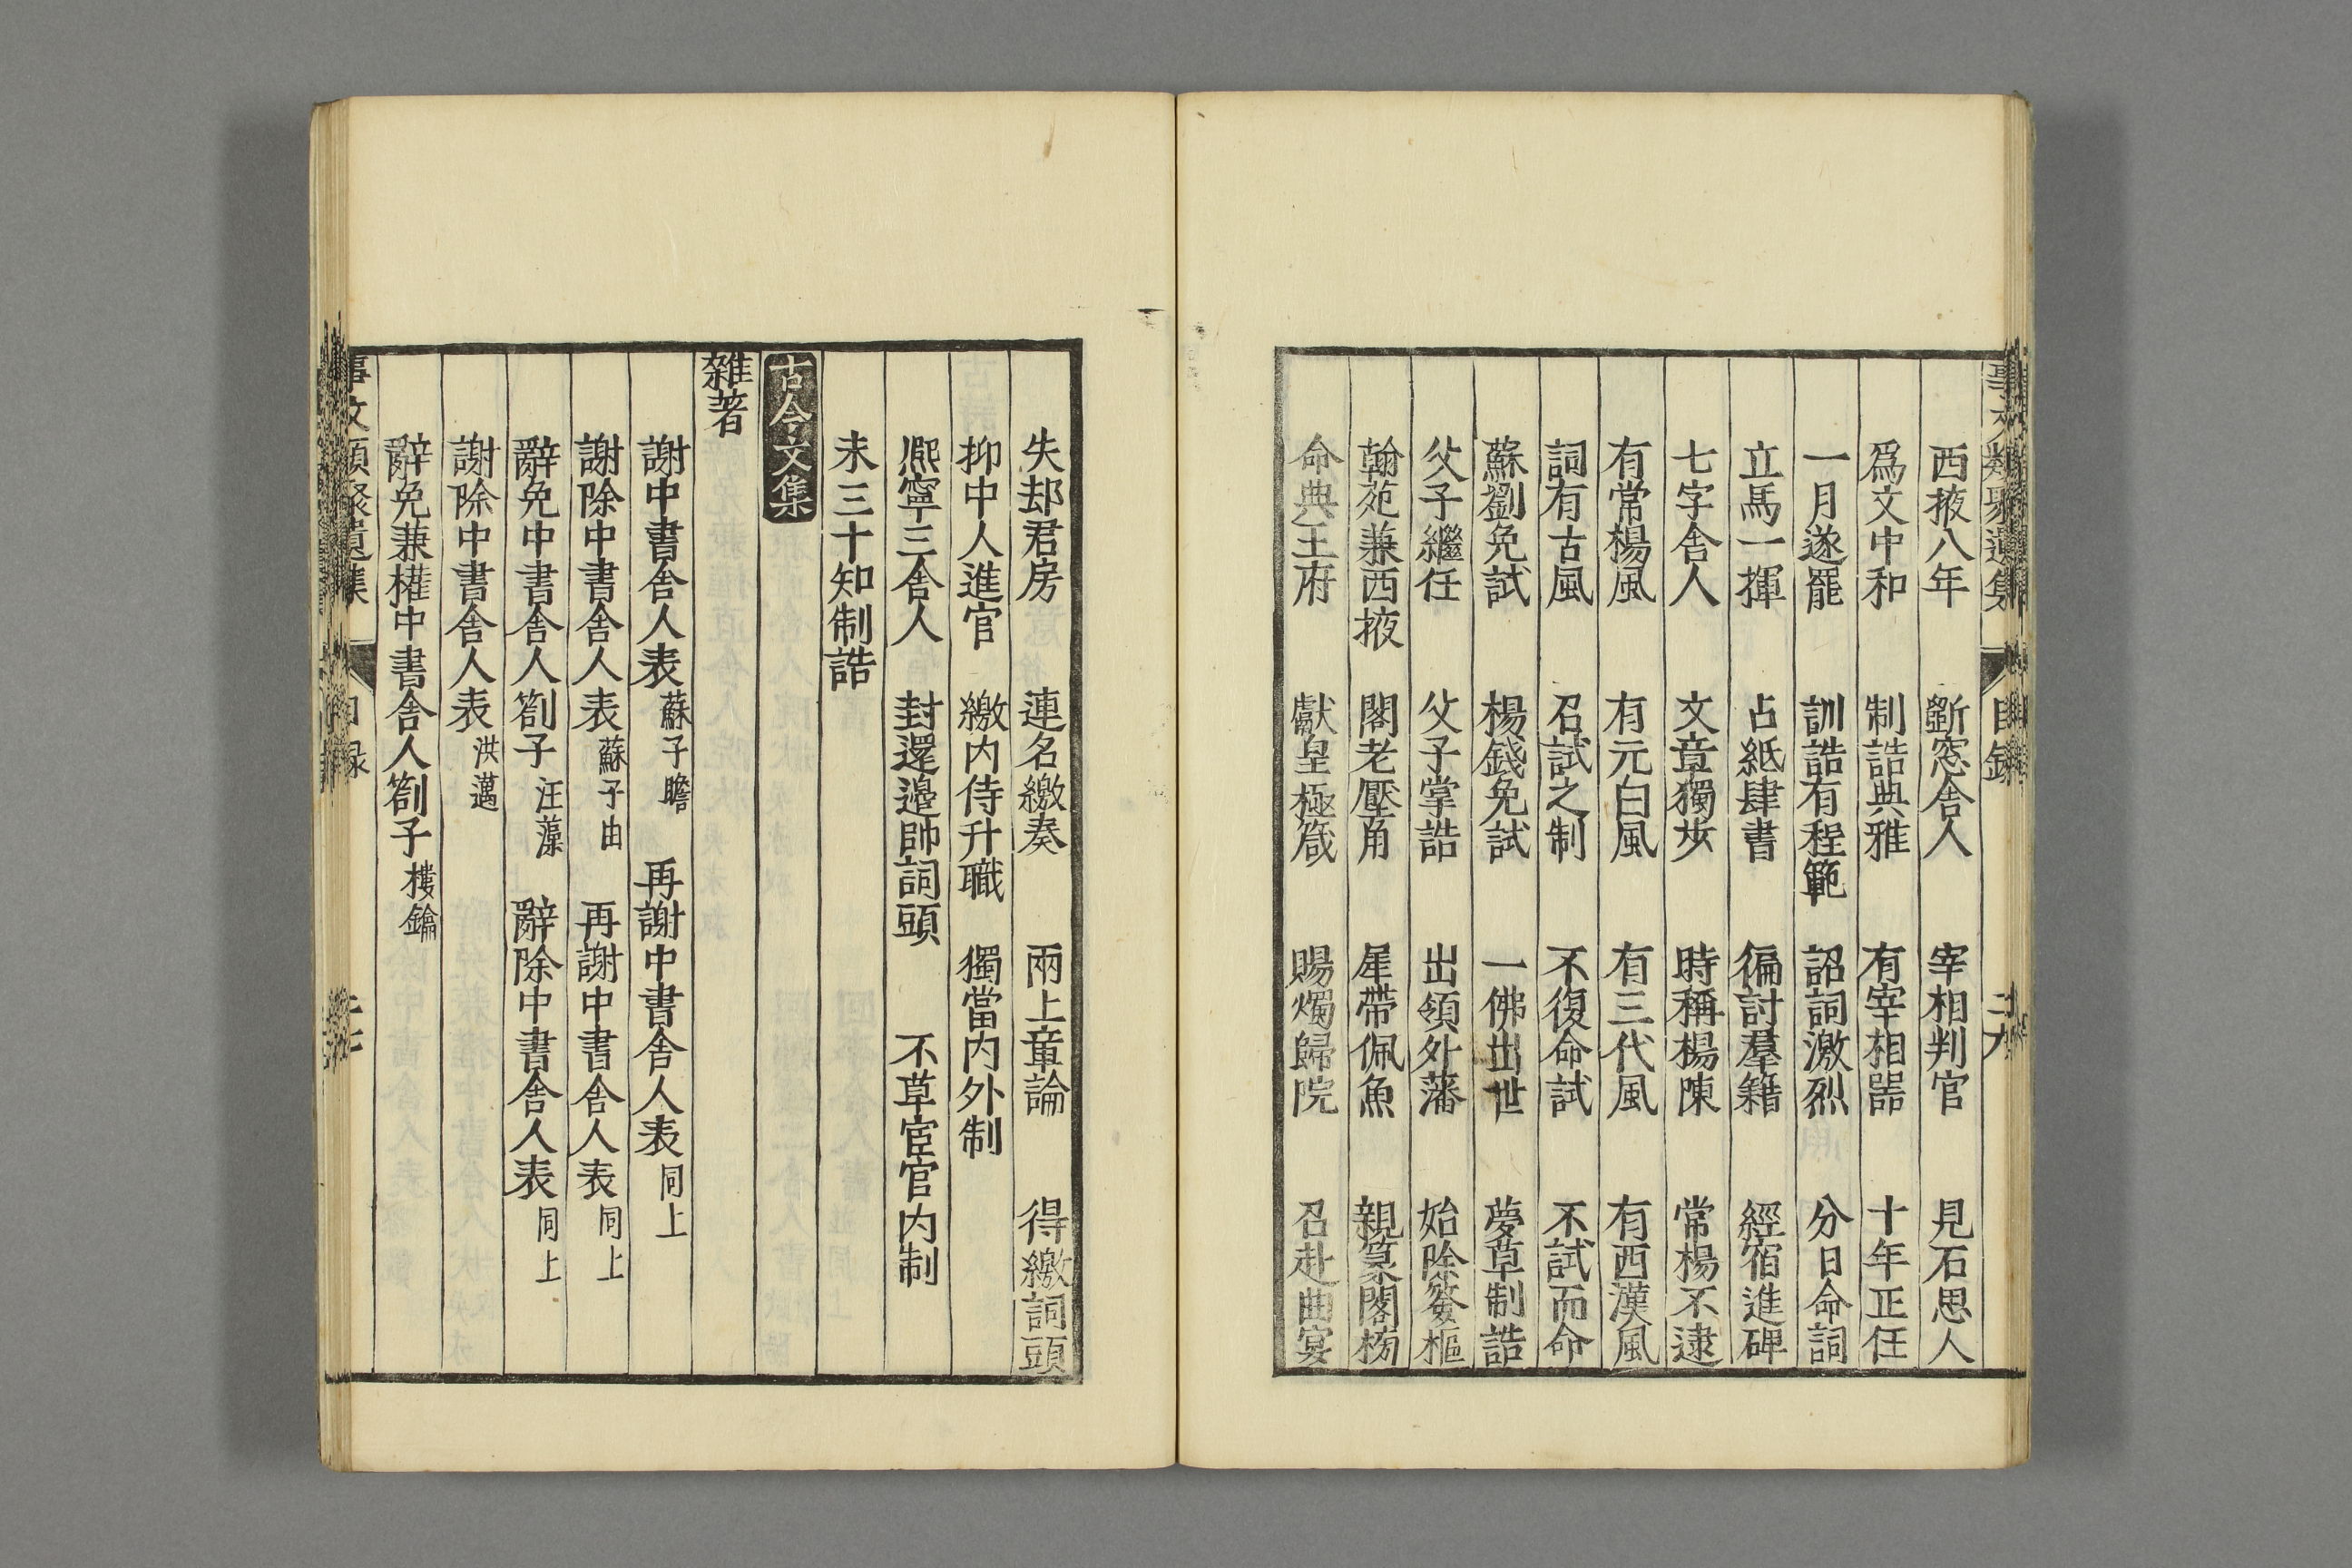 西掖八年　斵窓舍人　宰相判官　見石思人
爲文中和　制誥典雅　有宰相噐　十年正任
一月遂罷　訓誥有程範　詔詞激烈　分日命詞
立馬一揮　占紙肆書　徧討羣籍　經宿進碑
七字舍人　文章獨步　時稱楊陳　常楊不逮
有常楊風　有元白風　有三代風　有西漢風
詞有古風　召試之制　不復命試　不試而命
蘇劉免試　楊錢免試　一佛出世　夢草制誥
父子繼任　父子掌誥　出領外藩　始除簽樞
翰苑兼西掖　閣老壓角　犀帶佩魚　親篆閣榜
命典王府　獻皇極箴　賜燭歸院　召赴曲宴
失却君房　連名繳奏　兩上章論　得繳詞頭
抑中人進官　繳内侍升職　獨當内外制
熈寧三舍人　封還邊帥詞頭　不草宦官内制
未三十知制誥
古今文集
雜著
謝中書舍人表 蘇子瞻　再謝中書舍人表 同上
謝除中書舍人表 蘇子由　再謝中書舍人表 同上
辭免中書舍人劄子 汪藻　辭除中書舍人表 同上
謝除中書舍人表 洪邁
辭免兼權中書舍人劄子 樓鑰